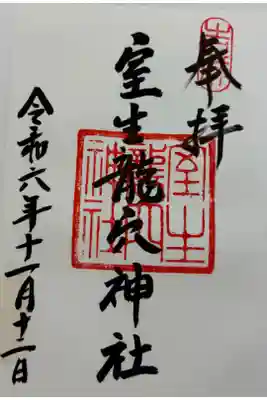 奉拝
室生龍穴神社
室生龍穴神社
令和六年十一月十二日